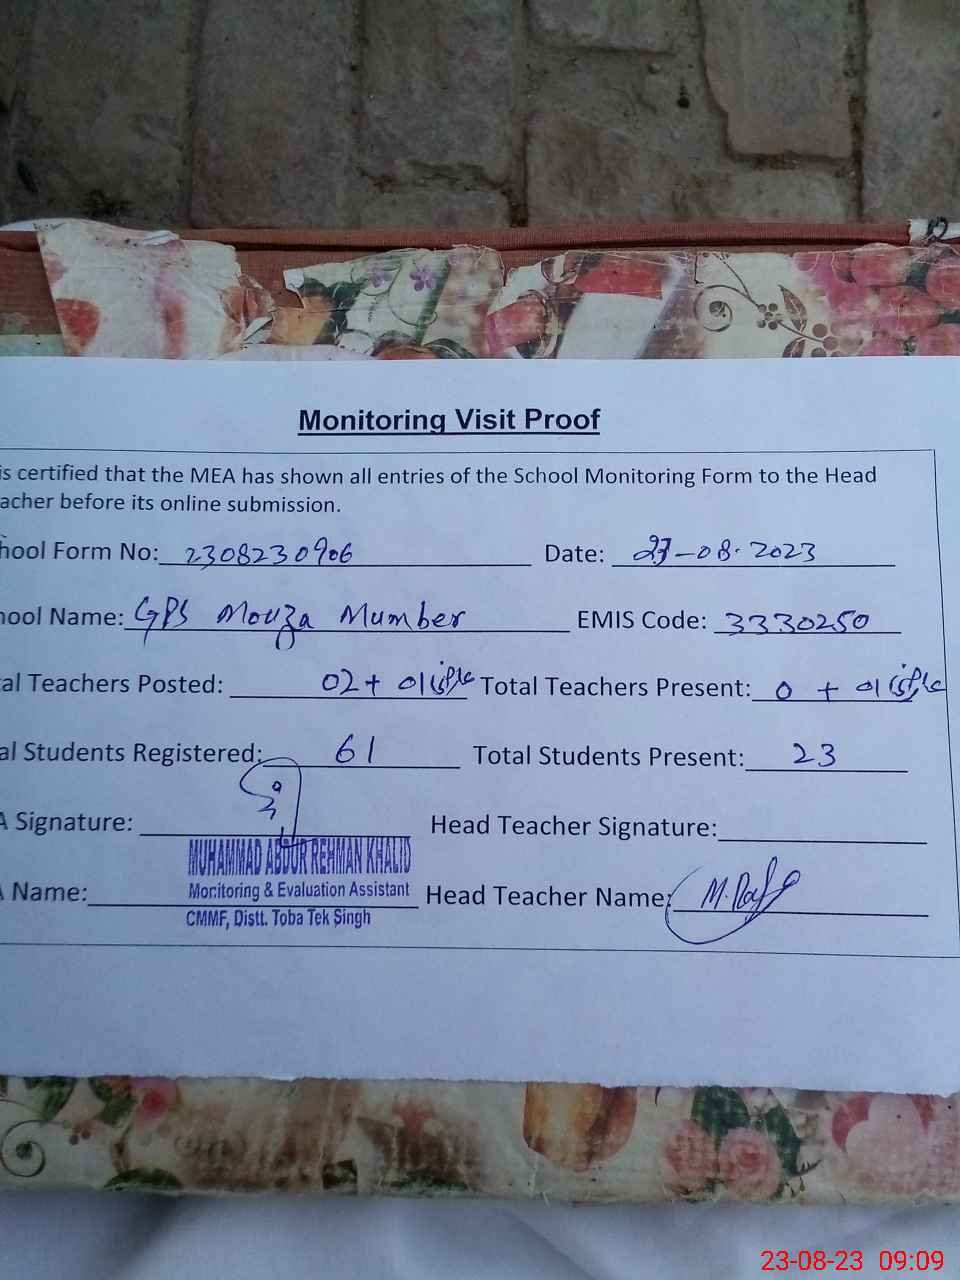 Monitoring Visit Proof
is certified that the MEA has shown all entries of the School Monitoring Form to the Head
acher before its online submission.
hool Form No: 2308230906 Date: 23-08-2023
hool Name: GPS Mouza Mumber EMIS Code: 3330250
al Teachers Posted: 02 + 01 Total Teachers Present: 0 + 01
al Students Registered: 61 Total Students Present: 23
A Signature: Head Teacher Signature:
MUHAMMAD ABDUR REHMAN KHALID
Monitoring & Evaluation Assistant
A Name: Head Teacher Name:
CMMF, Distt. Toba Tek Singh
23-08-23 09:09